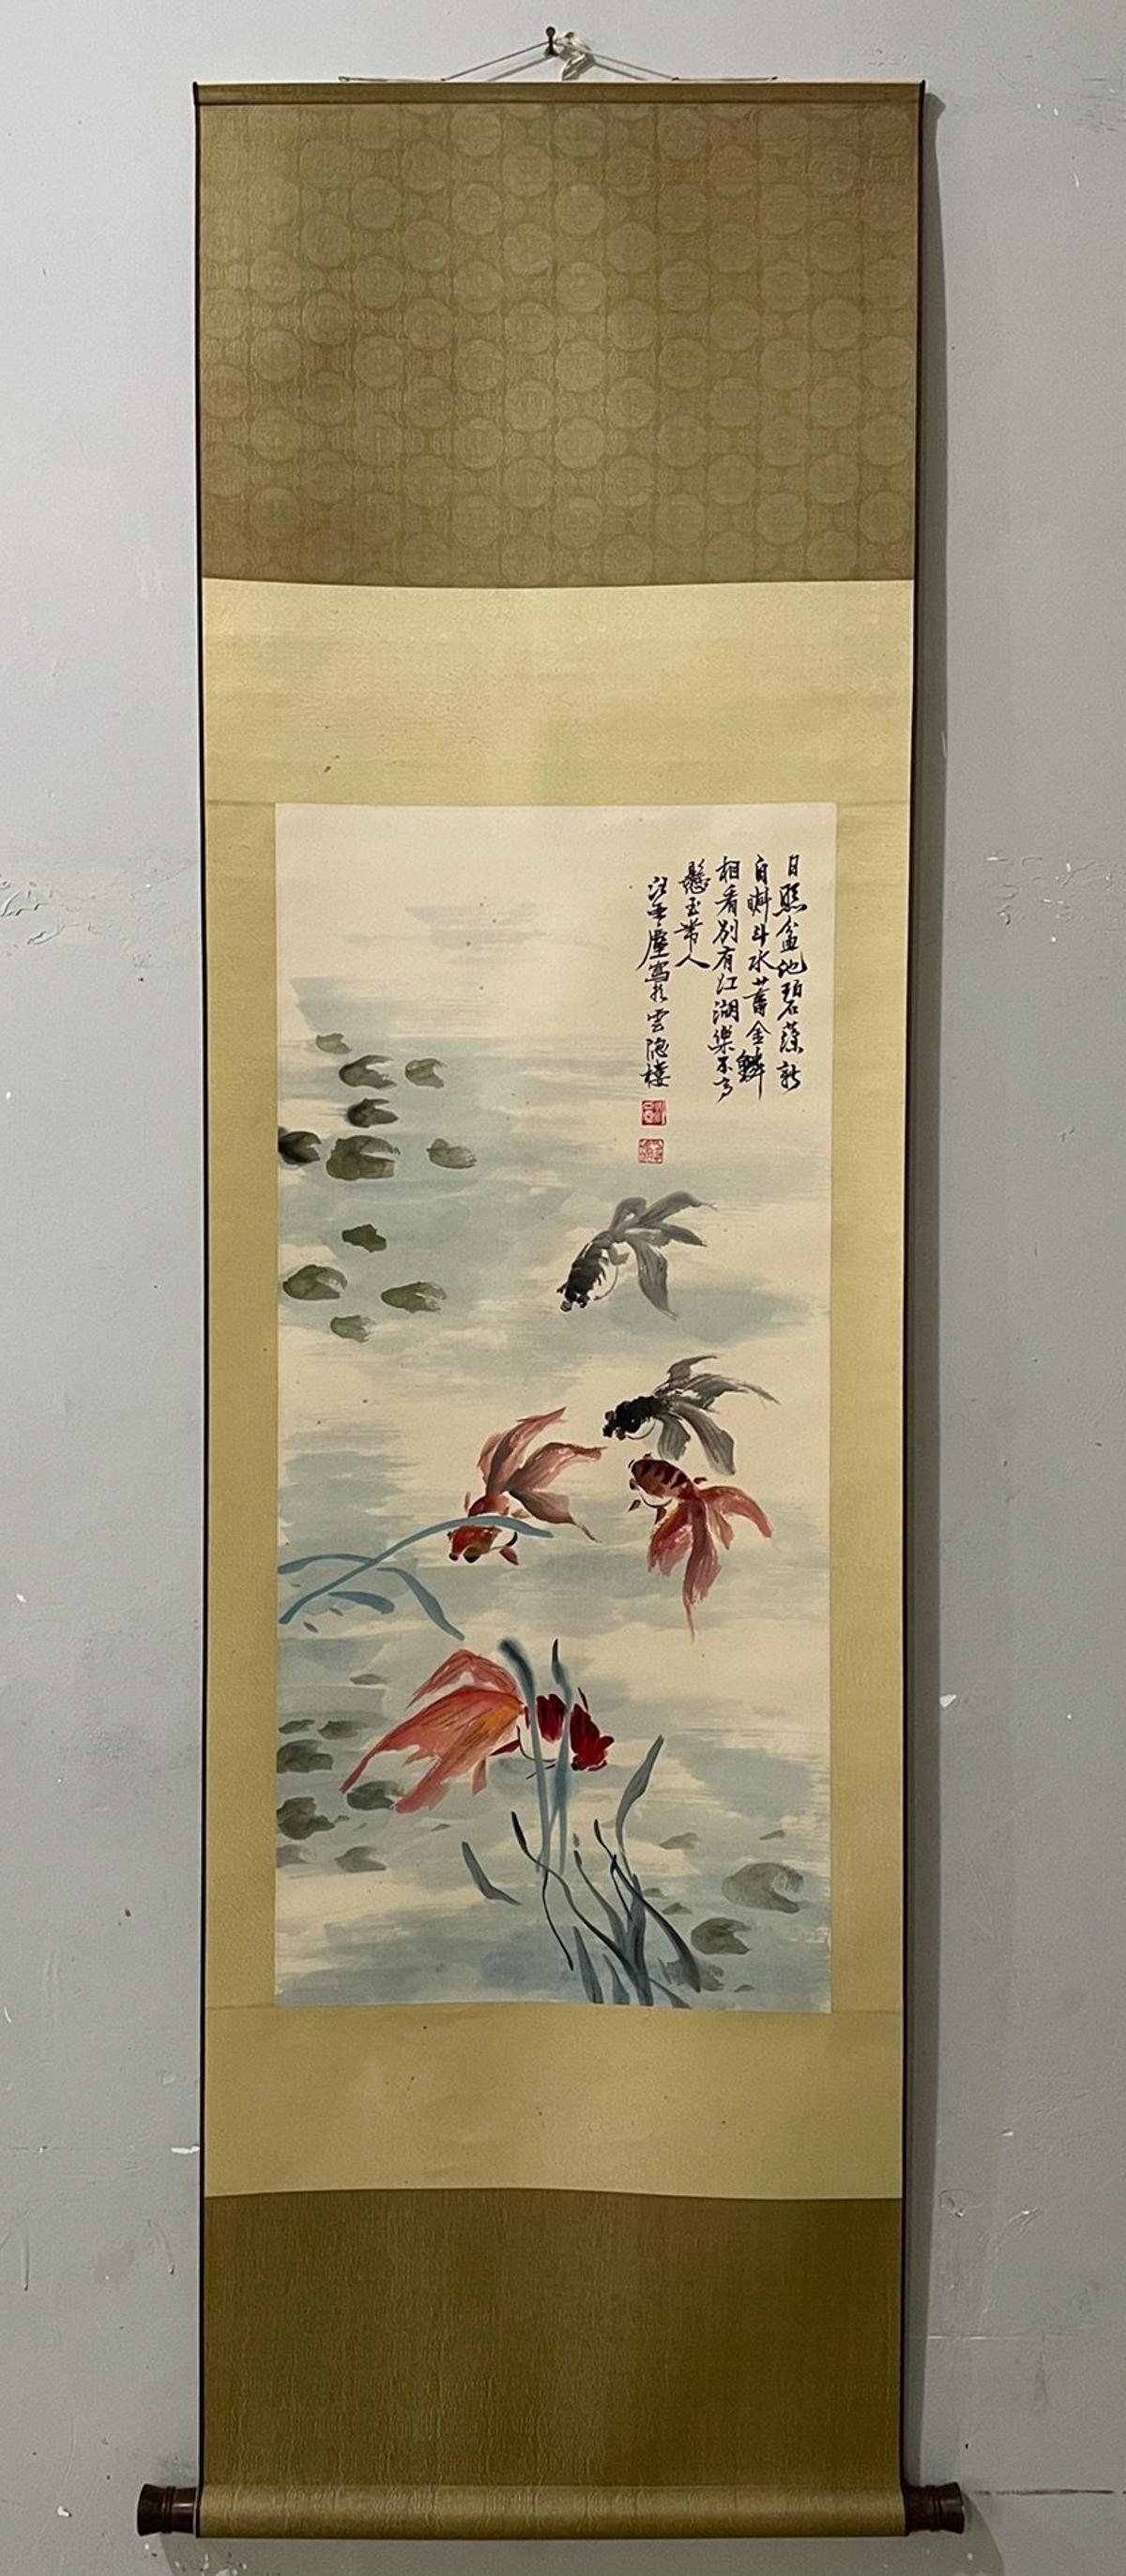 日照盆池碧藻新
自斟斗水蓄金鳞
相看别有江湖樂不為
懸玉帶人
汪亞塵寫於雲隱樓